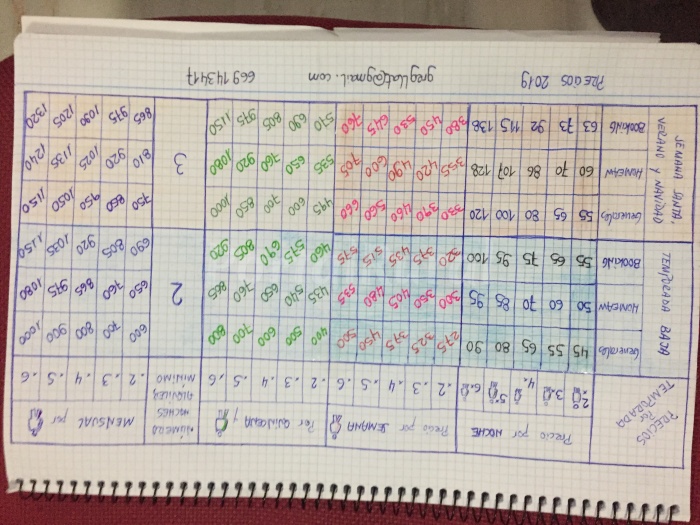 PRECIOS por TEMPORADA Precio por NOCHE Precio por SEMANA Por QUINCENA y NÚMERO NOCHES ALQUILER MÍNIMO MENSUAL por
2. 3. 4. 5. 6. .2 .3 .4 .5 .6 .2 .3 .4 .5 .6 .2 .3 .4 .5 .6
TEMPORADA BAJA
Generales 45 55 65 80 90 275 325 375 450 500 400 500 600 700 800 600 700 800 900 1000
HOMEAW 50 60 70 85 95 300 350 405 480 535 435 540 650 760 865 2 650 760 865 975 1080
BOOKING 55 65 75 95 100 320 375 435 515 575 460 575 690 805 920 690 805 920 1035 1150
SEMANA SANTA, VERANO y NAVIDAD
Generales 55 65 80 100 120 330 390 460 560 660 495 600 700 850 1000 750 850 950 1050 1150
HOMEAW 60 70 86 107 128 355 420 490 600 705 535 650 760 920 1080 3 810 920 1025 1135 1240
BOOKING 63 73 92 115 138 380 450 530 645 700 510 690 805 975 1150 865 975 1090 1205 1320
PRECIOS 2019 gregllat@gmail.com 669143417